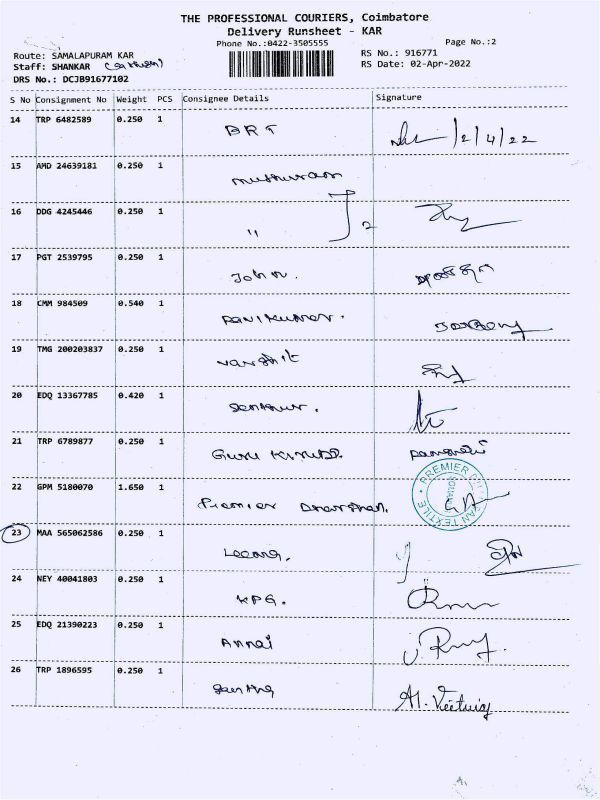 THE PROFESSIONAL COURIERS, Coimbatore
Delivery Runsheet - KAR
Phone No.:0422-3505555
Page No.:2
Route: SAMALAPURAM KAR
RS No.: 916771
Staff: SHANKAR
RS Date: 02-Apr-2022
DRS No.: DCJB91677102
S No Consignment No Weight PCS Consignee Details Signature
14 TRP 6482589 0.250 1
BRT 2/4/22
15 AMD 24639181 0.250 1
16 DDG 4245446 0.250 1
" 2
17 PGT 2539795 0.250 1
John.
18 CMM 984509 0.540 1
Ravikumar.
19 TMG 200203837 0.250 1
Varshit
20 EDQ 13367785 0.420 1
21 TRP 6789877 0.250 1
Guru
22 GPM 5180070 1.650 1
Premier
PREMIER TEXTILE
23 MAA 565062586 0.250 1
24 NEY 40041803 0.250 1
KPG.
25 EDQ 21390223 0.250 1
Annai
26 TRP 1896595 0.250 1